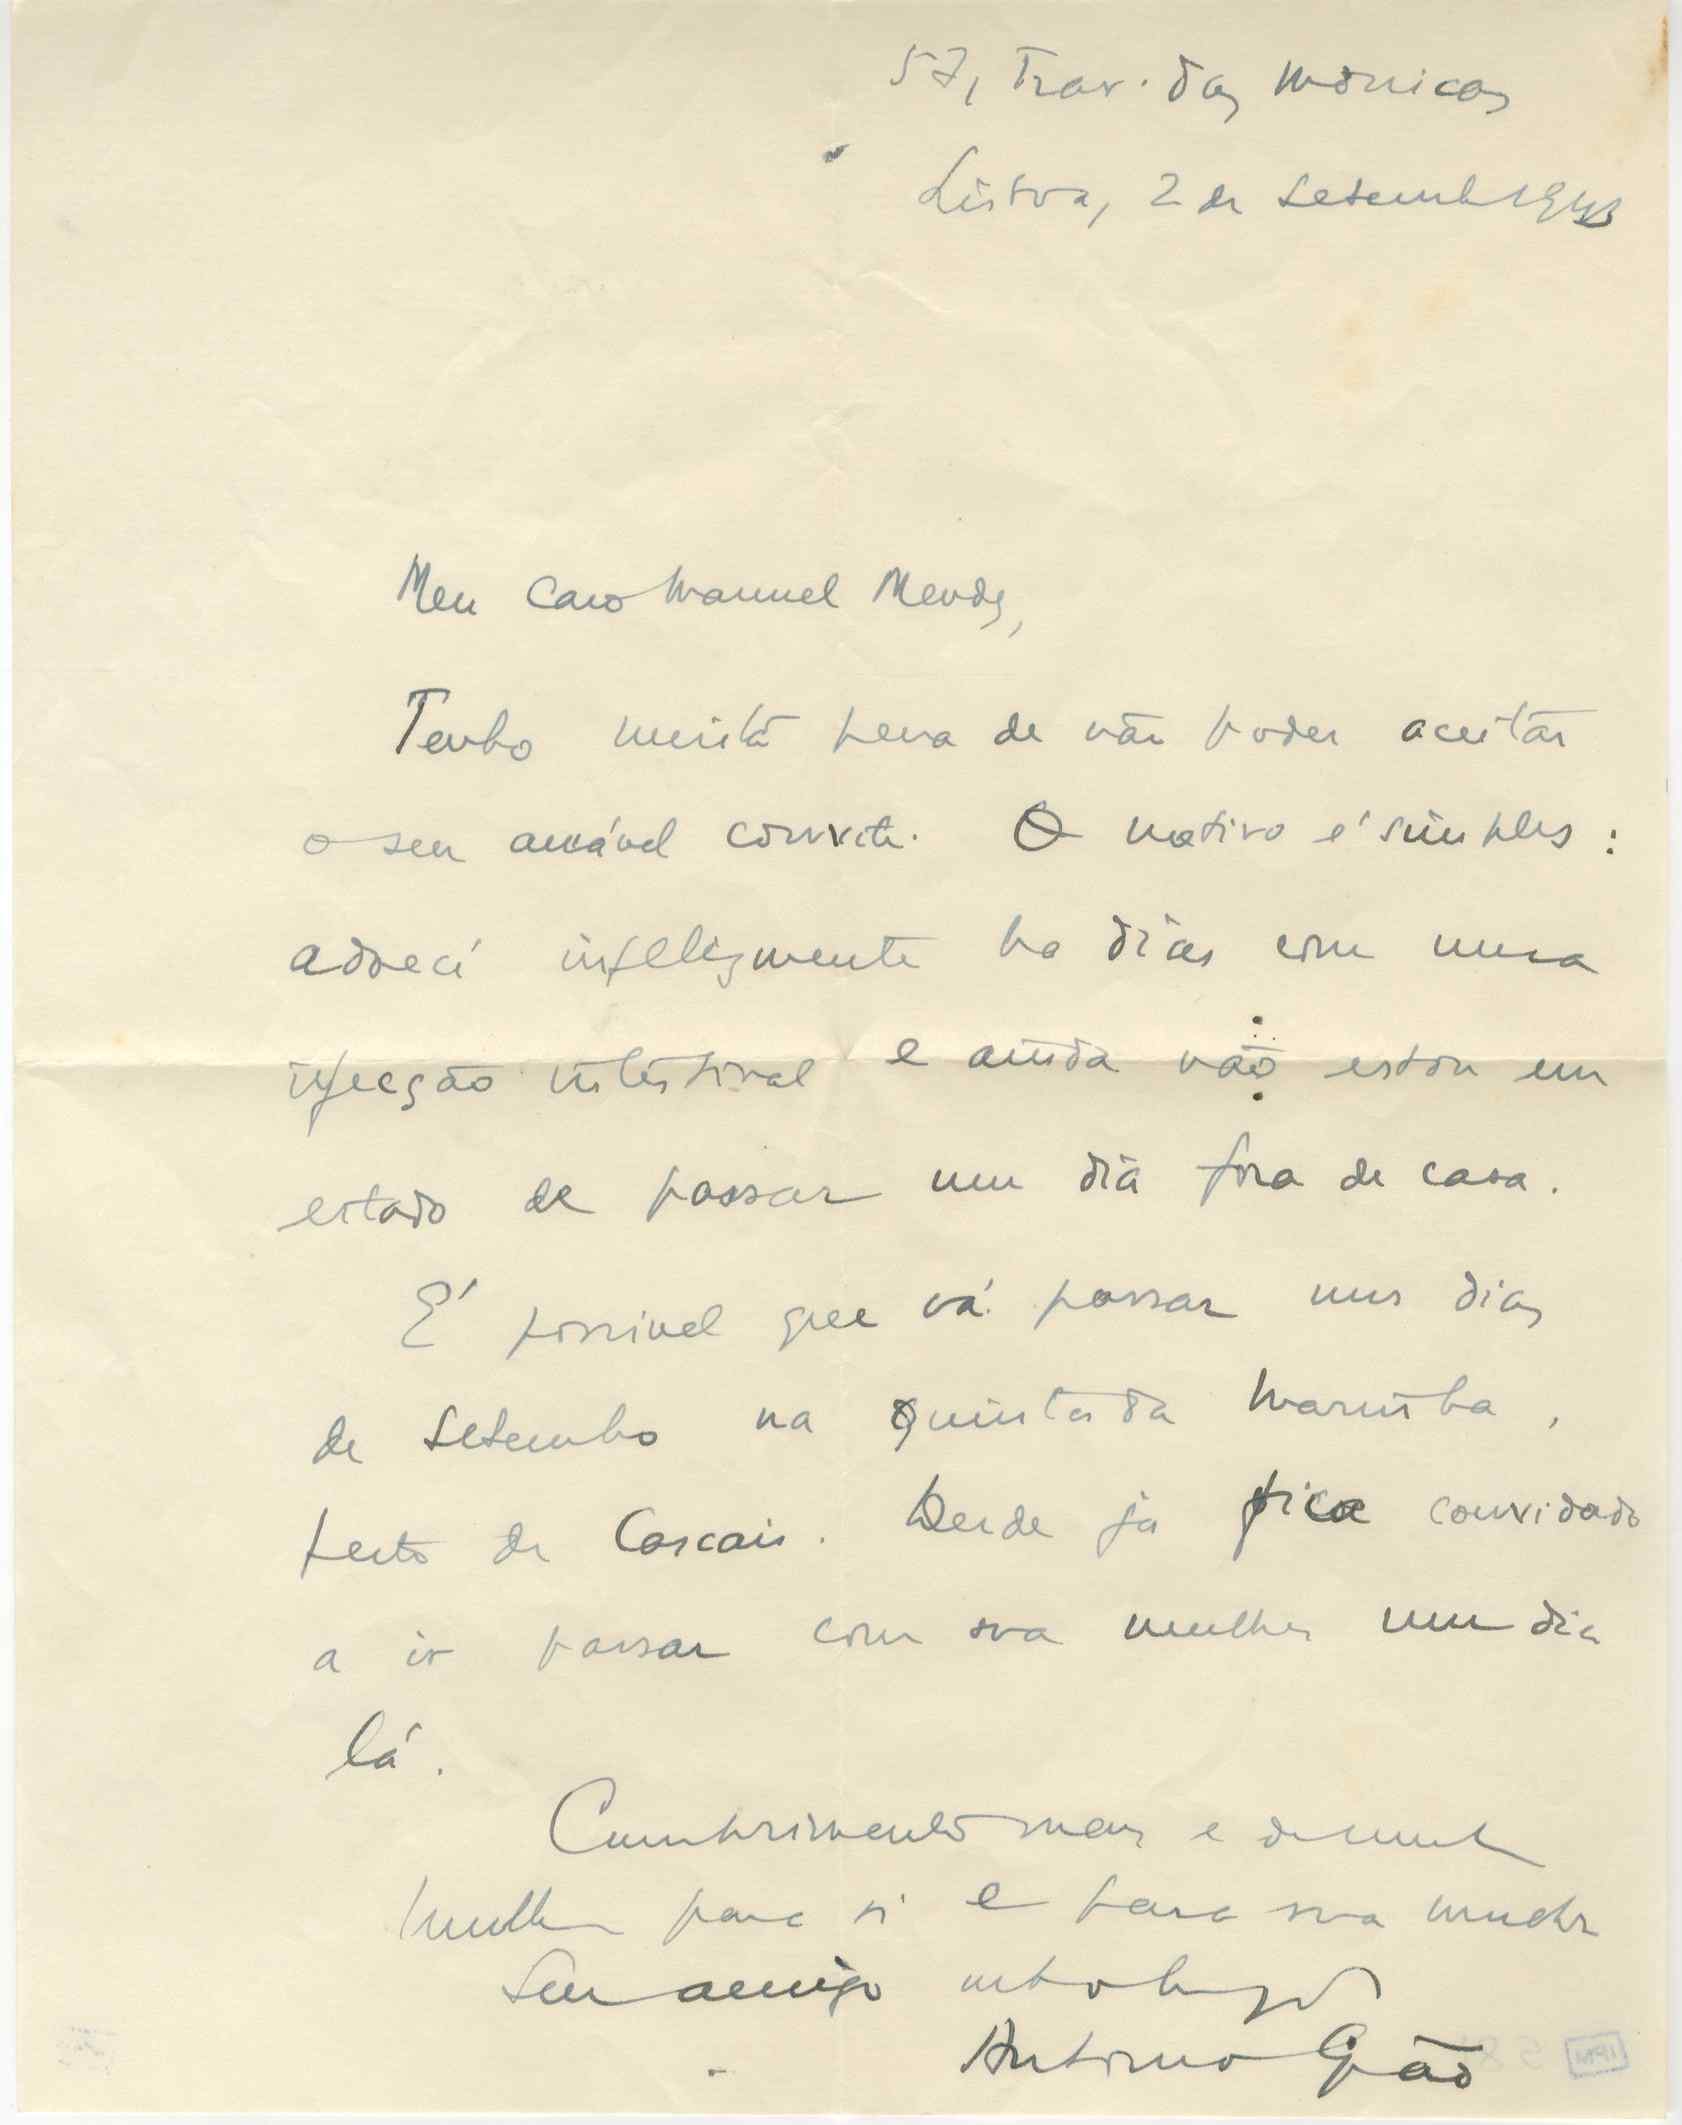 57, Trav. das Mónicas
Lisboa, 2 de Setemb 1943
Meu caro Manuel Mendes,
Tenho muita pena de não poder aceitar
o seu amável convite. O motivo é simples:
adoeci infelizmente ha dias com uma
infecção intestinal e ainda não estou em
estado de passar um dia fora de casa.
É possivel que vá passar uns dias
de Setembro na Quinta da Marinha,
perto de Cascais. Desde já fica convidado
a ir passar com sua mulher um dia
lá.
Cumprimentos meus e de minha
mulher para si e para sua mulher
Seu amigo mto obrigado
Antonio Gião
IPM